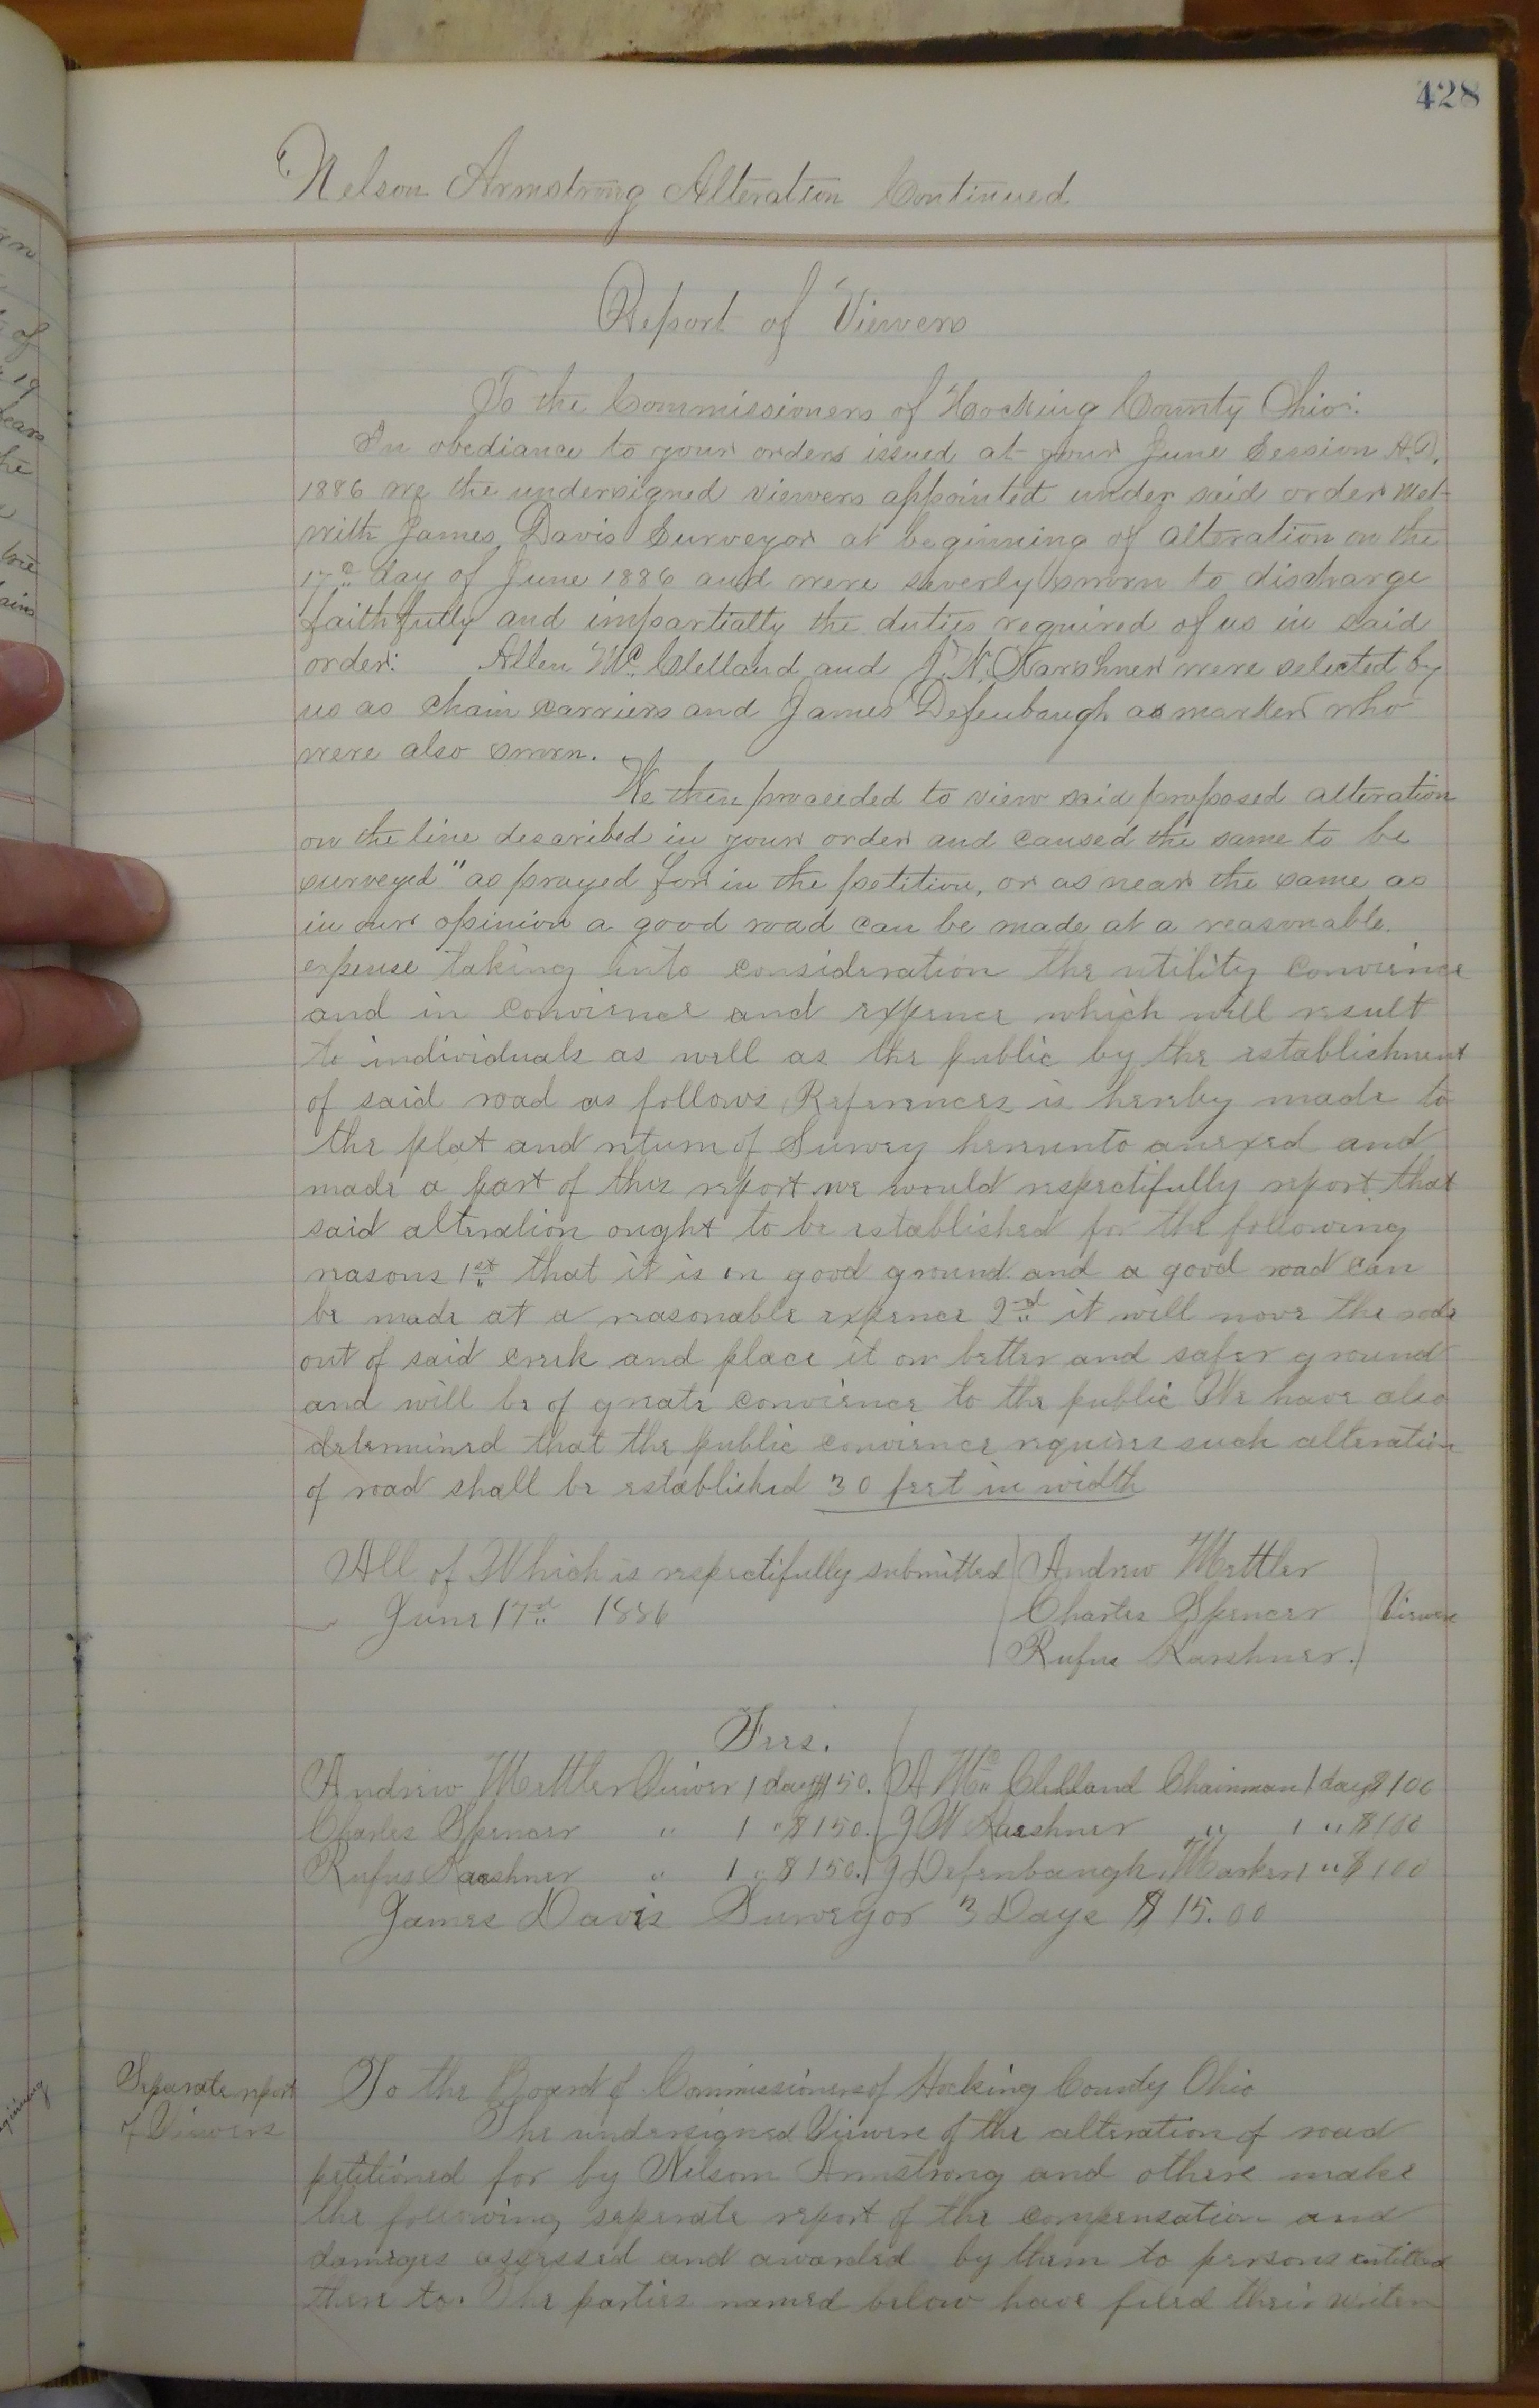 428
Nelson Armstrong Alteration Continued
Report of Viewers
To the Commissioners of Hocking County Ohio:
In obediance to your orders issued at your June Session A.D.
1886 we the undersigned viewers appointed under said order met
with James Davis Surveyor at beginning of alteration on the
17th day of June 1886 and were severly sworn to discharge
faithfully and impartially the duties required of us in said
order: Allen Mc Clelland and J. N. Karshner were selected by
us as chain carriers and James Defenbaugh as marker who
were also sworn.
We then proceeded to view said proposed alteration
on the line described in your order and caused the same to be
surveyed" as prayed for in the petition, or as near the same as
in our opinion a good road can be made at a reasonable
expense taking into consideration the utility convience
and in convience and expence which will result
to individuals as well as the public by the establishment
of said road as follows References is hereby made to
the plat and return of Survey hereunto anexed and
made a part of this report we would respectifully report that
said alteration ought to be established for the following
reasons 1st that it is on good ground and a good road can
be made at a reasonable expence 2nd it will move the rode
out of said creek and place it on better and safer ground
and will be of greate convience to the public We have also
determined that the public convience requires such alteration
of road shall be established 30 feet in width
All of Which is respectifully submitted Andrew Mettler
June 17th 1886 Charles Spencer Viewers
Rufus Karshner.
Fees.
Andrew Mettler Viewer 1 day $1 50. A Mc Clelland Chainman 1 day $1 00
Charles Spencer " 1 " $1 50. J N Karshner " 1 " $1 00
Rufus Karshner " 1 " $1 50. J Defenbaugh Marker 1 " $1 00
James Davis Surveyor 3 Days $15.00
Separate report
of Viewers
To the Board of Commissioners of Hocking County Ohio
The undersigned Viewers of the alteration of road
petitioned for by Nelson Armstrong and others make
the following seperate report of the compensation and
damages assessed and awarded by them to persons entitled
there to. The parties named below have filed their writen